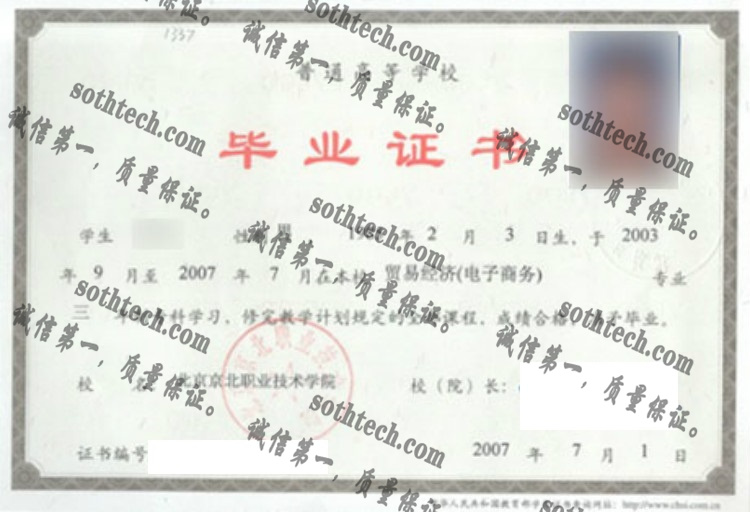 1337
普通高等学校
毕业证书
学生 性 男 19 年 2 月 3 日生，于 2003
年 9 月至 2007 年 7 月在本校 贸易经济(电子商务) 专业
三 年 科学习，修完教学计划规定的全部课程，成绩合格，准予毕业。
校 名 北京京北职业技术学院 校（院）长：
证书编号 2007 年 7 月 1 日
中华人民共和国教育部学历证书查询网址：http://www.chsi.com.cn
sothtech.com
诚信第一，质量保证。
sothtech.com
诚信第一，质量保证。
sothtech.com
诚信第一，质量保证。
sothtech.com
诚信第一，质量保证。
sothtech.com
诚信第一，质量保证。
sothtech.com
诚信第一，质量保证。
sothtech.com
诚信第一，质量保证。